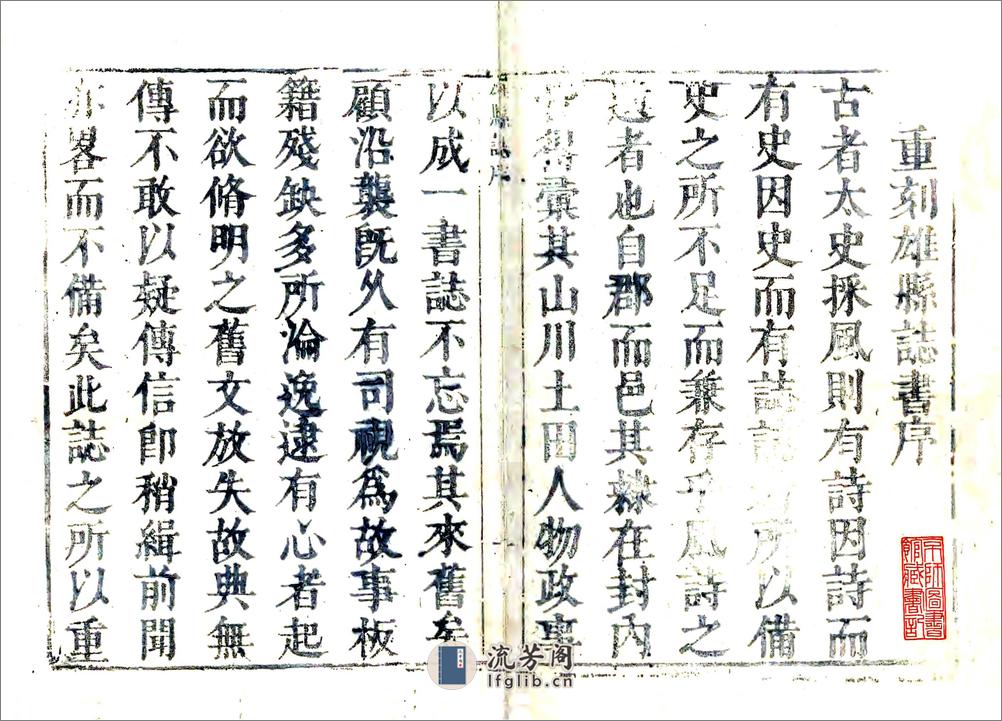 重刻雄縣誌書序
古者太史採風則有詩因詩而
有史因史而有誌誌所以備
史之所不足而兼存乎風詩之
遺者也自郡而邑其隸在封內
得彙其山川土田人物政事
雄縣誌序
以成一書誌不忘焉其來舊矣
顧沿襲旣久有司視爲故事板
籍殘缺多所淪逸逮有心者起
而欲脩明之舊文放失故典無
傳不敢以疑傳信卽稍緝前聞
亦畧而不備矣此誌之所以重
京師圖書
館藏書記
流芳阁
lfglib.cn